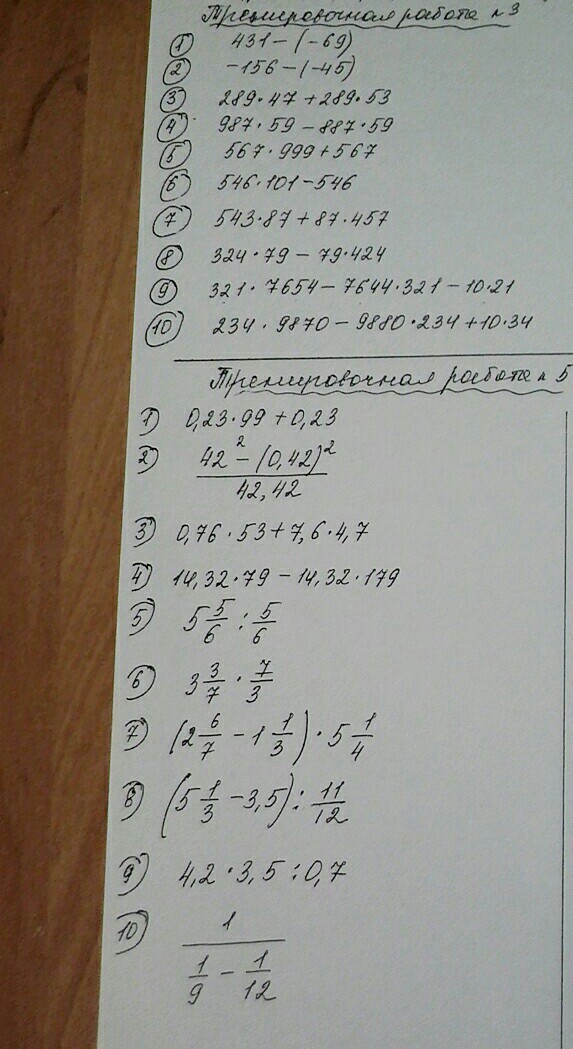 Тренировочная работа №3
1 431-(-69)
2 -156-(-45)
3 289·47+289·53
4 987·59-887·59
5 567·999+567
6 546·101-546
7 543·87+87·457
8 324·79-79·424
9 321·7654-7644·321-10·21
10 234·9870-9880·234+10·34
Тренировочная работа №5
1) 0,23·99+0,23
2) (42²-(0,42)²)/42,42
3) 0,76·53+7,6·4,7
4) 14,32·79-14,32·179
5) 5 5/6 : 5/6
6) 3 3/7 · 7/3
7) (2 6/7 - 1 1/3) · 5 1/4
8) (5 1/3 - 3,5) : 11/12
9) 4,2·3,5:0,7
10) 1/(1/9 - 1/12)